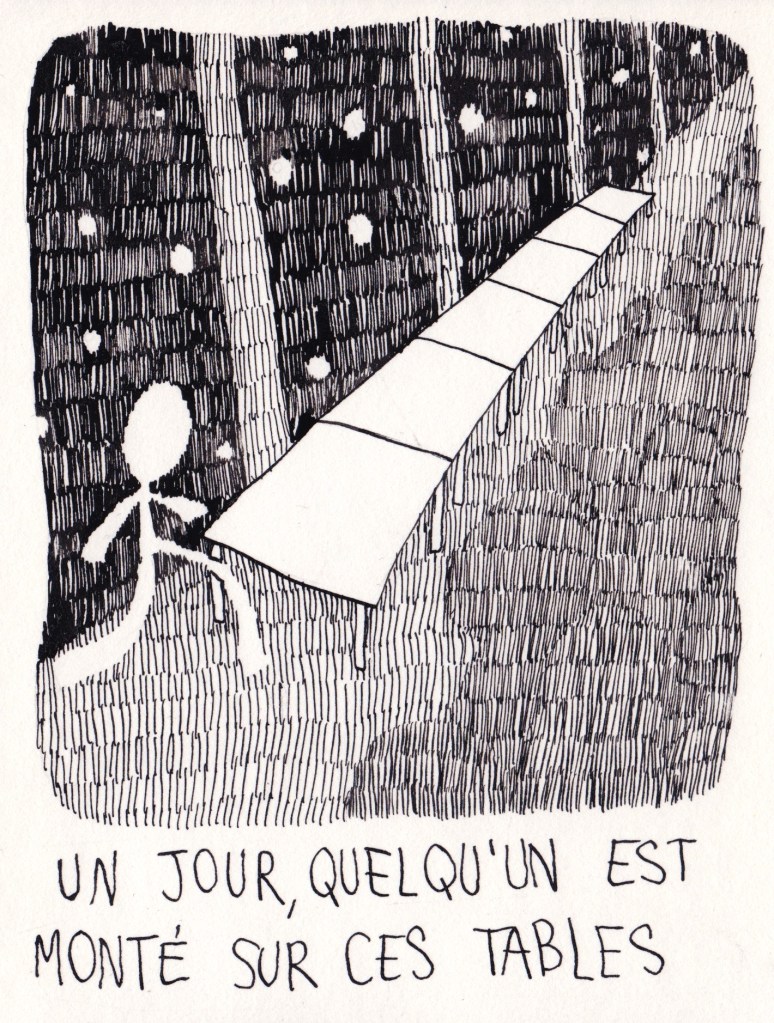 UN JOUR, QUELQU'UN EST
MONTÉ SUR CES TABLES